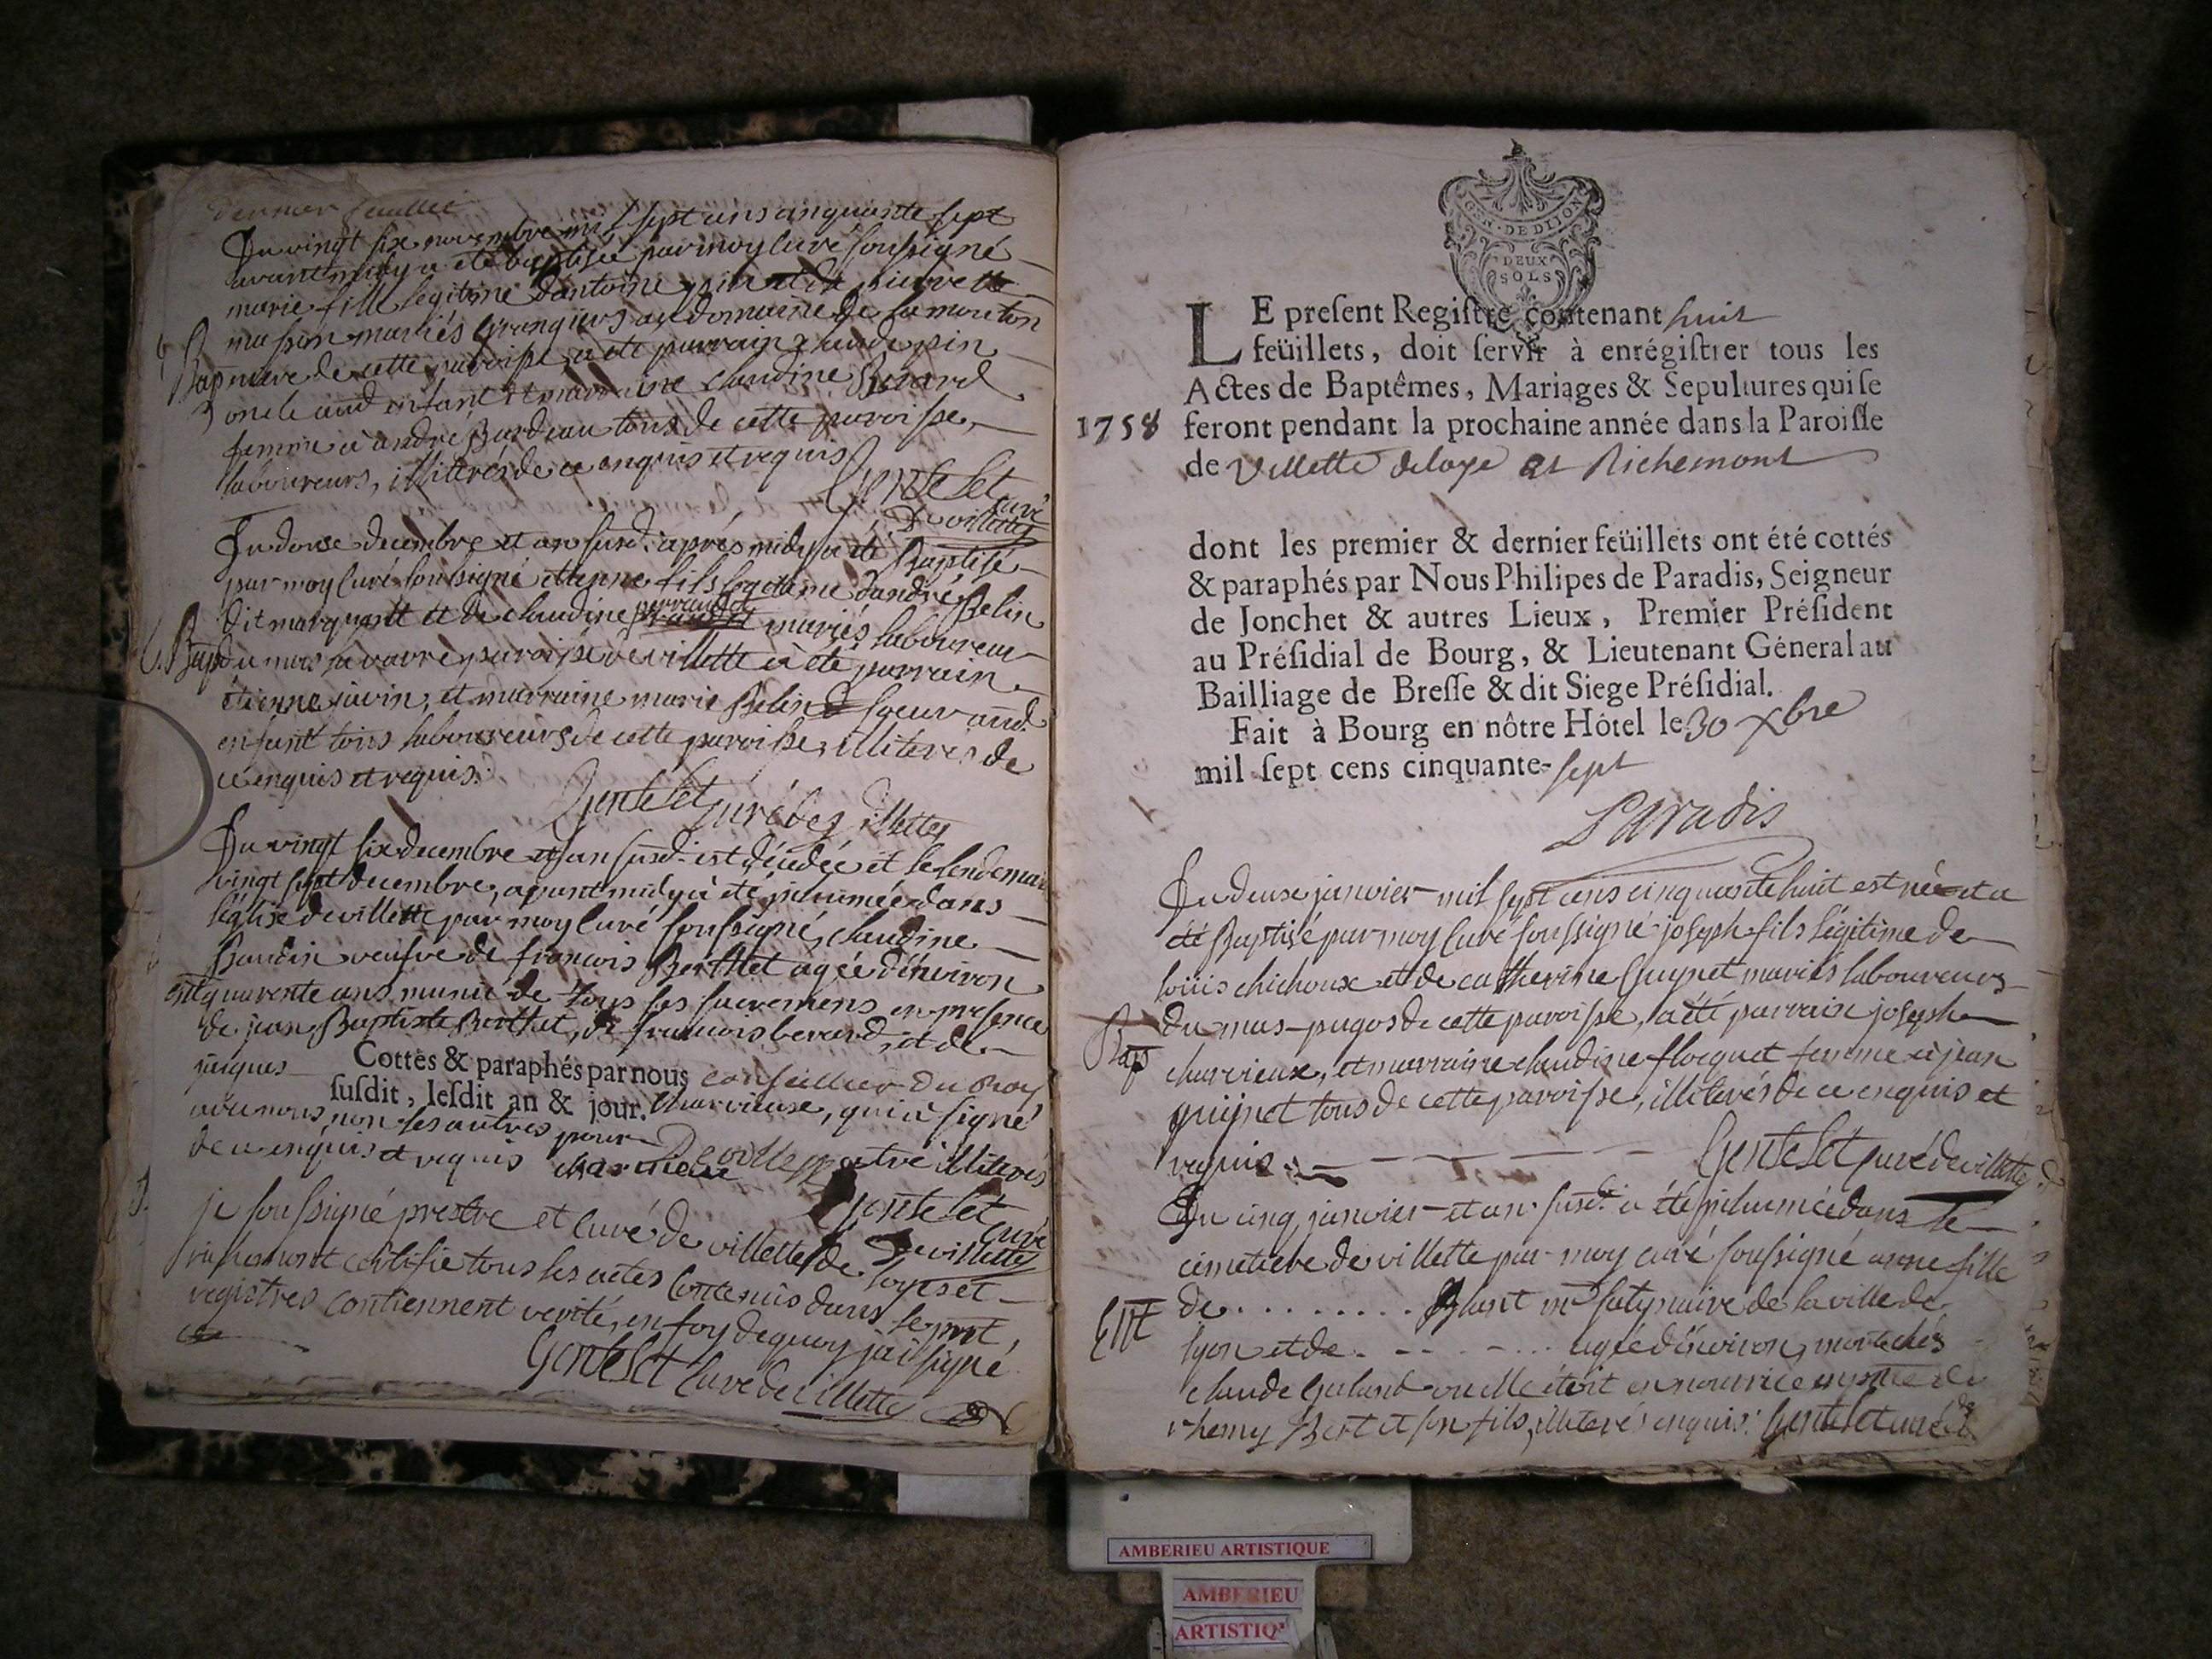 dernier feuillet
Du vingt six novembre mil sept cens cinquante sept
avant midy a été baptisée par moy curé soussigné
marie fille légitime d'antoine pin et de pierrette
masson mariés grangers au domaine de la mouton
Bap nière de cette paroisse, a été parrain claude pin
oncle aud enfant et marraine claudine Benard
femme à andré Burdeau tous de cette paroisse
laboureurs, illiterés de ce enquis et requis
Gentelet curé
de villette
Du douse decembre et an susd. après midy a été Baptisé
par moy curé soussigné etienne fils legitime d'andré Belin
perraudet
dit marquant et de claudine mariés laboureur
Bap du mas la vavre paroisse de villette a été parrain
etienne javin, et marraine marie Belin soeur aud
enfant tous laboureurs de cette paroisse, illiterés de
ce enquis et requis.
Gentelet curé de villette
Du vingt six decembre et an susd. est décédée et le lendemain
vingt sept decembre, avant midy a été inhumée dans
l'église de villette par moy curé soussigné, claudine
Baudin veufve de francois Berthet agée d'environ
quarente ans munie de tous les sacremens en presence
de jean Baptiste Berthet, de francois berard, et de
jacques
Cottés & paraphés par nous conseiller du Roy
susdit, lesdit an & jour.
charvieux, qui a signé
avec nous, non les autres pour
de ce enquis et requis charvieux
etre illiterés
Gentelet curé
de villette
je soussigné prestre et curé de villette de loyes et
richemont certifie tous les actes contenus dans le pnt
registres contiennent verité, en foy de quoy j'ai signé
Gentelet curé de villette
GEN. DE DIJON
DEUX
SOLS
LE present Registre contenant huit
feüillets, doit servir à enrégistrer tous les
Actes de Baptêmes, Mariages & Sepultures qui se
1758 feront pendant la prochaine année dans la Paroisse
de Villette de loye et Richemont
dont les premier & dernier feüillets ont été cottés
& paraphés par Nous Philipes de Paradis, Seigneur
de Jonchet & autres Lieux, Premier Président
au Présidial de Bourg, & Lieutenant Géneral au
Bailliage de Bresse & dit Siege Présidial.
Fait à Bourg en nôtre Hôtel le 30 xbre
mil sept cens cinquante-sept
Paradis
Du deuse janvier mil sept cens cinquante huit est né et a
été Baptisé par moy curé soussigné joseph fils légitime de
louis chichoux et de catherine Guynet mariés laboureurs
du mas pugos de cette paroisse, a été parrain joseph
Bap charvieux, et marraine claudine floquet femme à jean
guynet tous de cette paroisse, illiterés de ce enquis et
requis. Gentelet curé de villette
Du cinq janvier et an susd. a été inhumée dans le
cimetiere de villette par moy curé soussigné anne fille
de ......... Blant me de la ville de
lyon et de ........ agée d'environ, morte chés
claude Galand ou elle étoit en nourrice en pnce de
rhemy Bert et son fils, illiterés enquis. Gentelet curé d
AMBERIEU ARTISTIQUE
AMBERIEU
ARTISTIQ